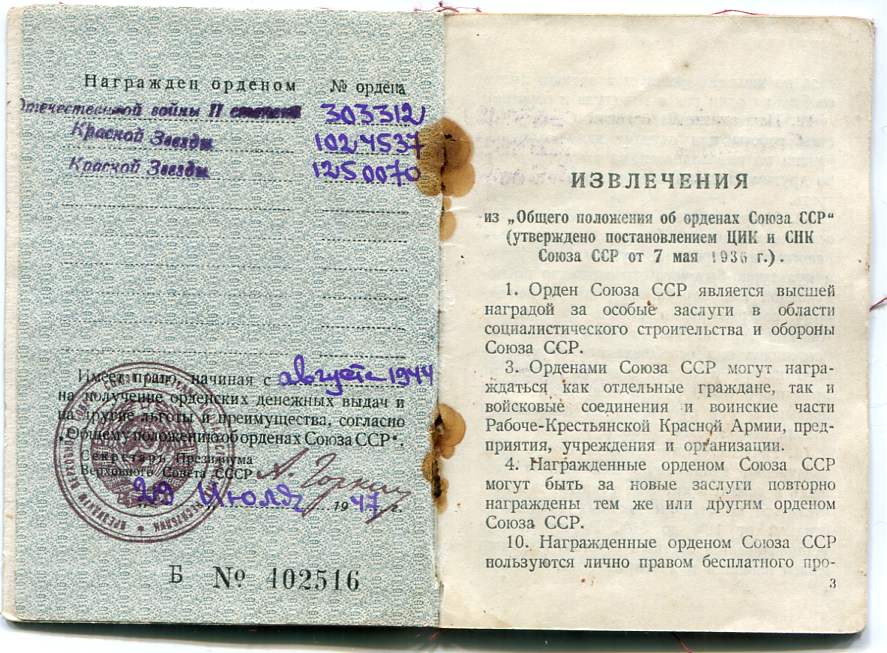 Награжден орденом № ордена
Отечественной войны II степени 303312
Красной Звезды 1024537
Красной Звезды 1250070
Имеет право, начиная с августа 1944
на получение орденских денежных выдач и
на другие льготы и преимущества, согласно
„Общему положению об орденах Союза ССР“.
Секретарь Президиума
Верховного Совета СССР А. Горкин
29 Июля 1947 г.
Б № 402516
ИЗВЛЕЧЕНИЯ
из „Общего положения об орденах Союза ССР“
(утверждено постановлением ЦИК и СНК
Союза ССР от 7 мая 1936 г.).
1. Орден Союза ССР является высшей
наградой за особые заслуги в области
социалистического строительства и обороны
Союза ССР.
3. Орденами Союза ССР могут награ-
ждаться как отдельные граждане, так и
войсковые соединения и воинские части
Рабоче-Крестьянской Красной Армии, пред-
приятия, учреждения и организации.
4. Награжденные орденом Союза ССР
могут быть за новые заслуги повторно
награждены тем же или другим орденом
Союза ССР.
10. Награжденные орденом Союза ССР
пользуются лично правом бесплатного про-
3